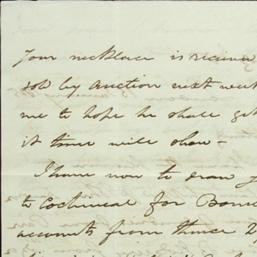 Your necklace is received
sold by auction next week
me to hope he shall get
it time will show -
I have now to draw y
to Cochineal for Bom
accounts from thence